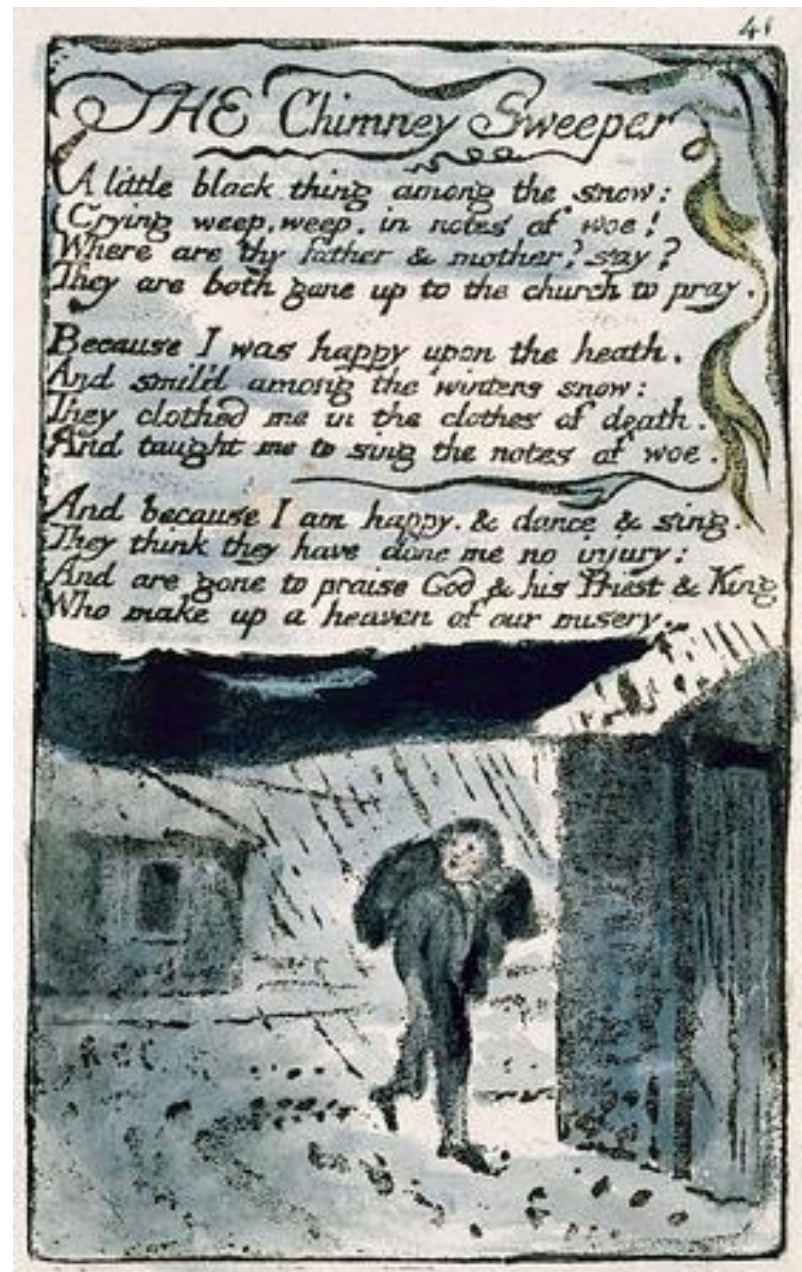 41
THE Chimney Sweeper
A little black thing among the snow:
Crying weep, weep, in notes of woe!
Where are thy father & mother? say?
They are both gone up to the church to pray.
Because I was happy upon the heath.
And smil'd among the winters snow:
They clothed me in the clothes of death.
And taught me to sing the notes of woe.
And because I am happy. & dance & sing.
They think they have done me no injury:
And are gone to praise God & his Priest & King
Who make up a heaven of our misery.